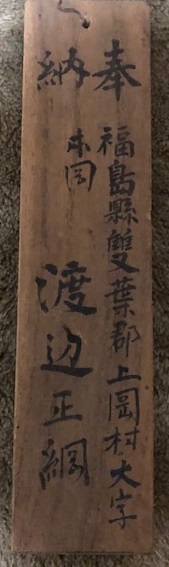 奉納
福島縣雙葉郡上岡村大字
本岡
渡辺正綱